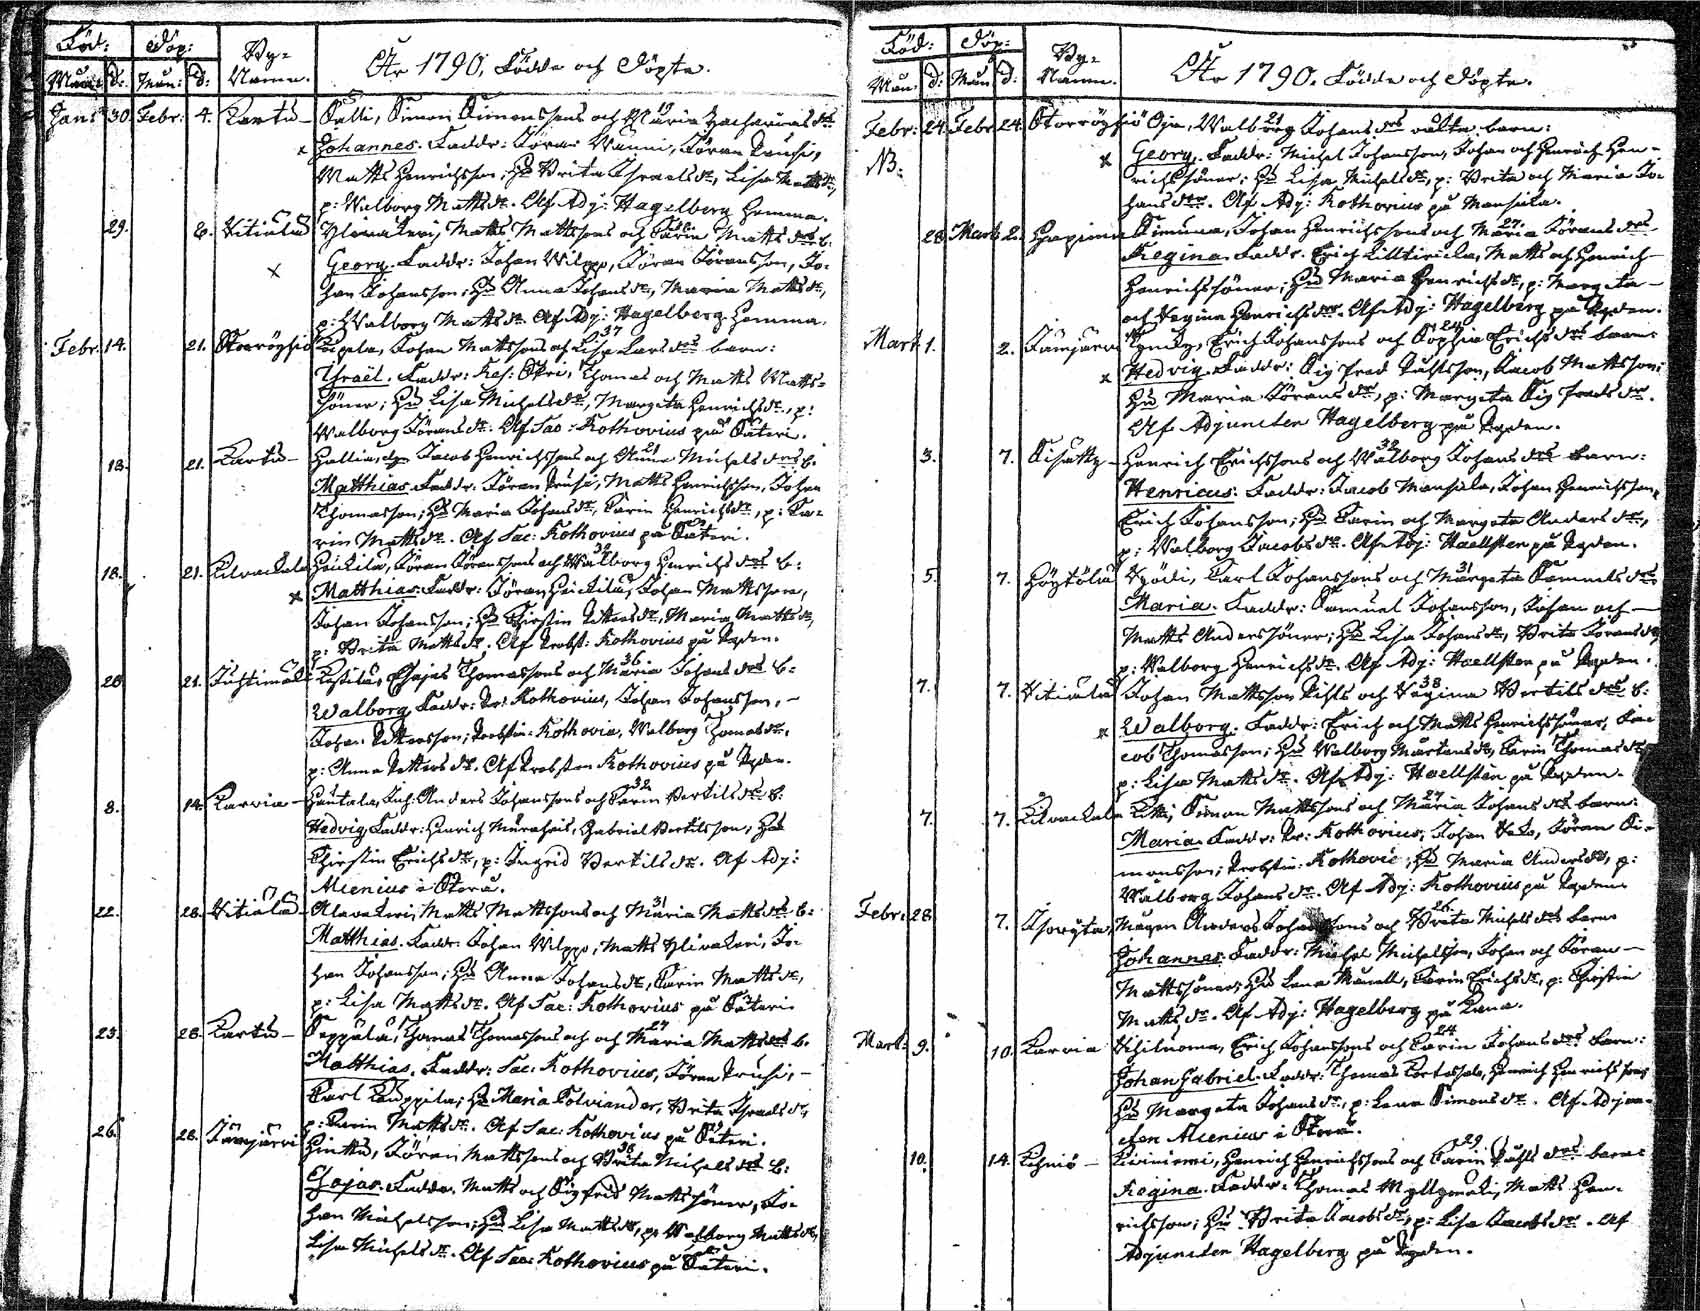 Föd: Döp: By-
Mån: d: Mån: d: Namn. År 1790, Födde och Döpte.
Jan: 30. Febr: 4. Kartu – Salli, Simon Simonssons och Maria 19 Zachariæ dr
x Johannes. Faddr: Jöran Wänni, Jöran Prusi,
Matts Henrichsson; Hu Brita Israels dr, Lisa Matts dr,
p: Walborg Matts dr. Af Adj: Hagelberg hemma.
29. 6. Vitiälä Ylinäkeri, Matts Mattssons och Carin Matts drs b:
x Georg. Faddr: Johan Wilppo, Jöran Jöransson, Jo-
han Johansson; Hu Anna Johans dr, Maria Matts dr,
p: Walborg Matts dr. Af Adj: Hagelberg hemma.
Febr. 14. 21. Storröyhiö Tepola, Johan Mattssons och Lisa 37 Lars drs barn:
Israël. Faddr: Thomas och Matts Matts-
söner; Hu Lisa Michels dr, Margeta Henrichs dr, p:
Walborg Jörans dr. Af Sac: Kothovius på Säteri.
13. 21. Kartu – Hallia, Jacob Henrichssons och Anna 21 Michels drs b:
Matthias. Faddr: Jöran Prusi, Matts Henrichsson, Johan
Thomasson; Hu Maria Johans dr, Carin Henrichs dr, p: Ca-
rin Matts dr. Af Sac: Kothovius på Säteri.
18. 21. Kilvackala Heickilä, Jöran Jöranssons och Walborg 32 Henrichs drs b:
x Matthias. Faddr: Jöran Heickilä, Johan Mattsson,
Johan Johansson; Hu Christin Petters dr, Maria Matts dr,
p: Brita Matts dr. Af Probst: Kothovius på Pregden.
20. 21. Juhtimäki Kastilas, Esajas Thomassons och Maria 36 Johans drs b:
Walborg. Faddr: Pr: Kothovius, Johan Johansson, –
Johan Pettersson; Probstin: Kothovia, Walborg Thomas dr,
p: Anna Petters dr. Af Probsten Kothovius på
8. 14. Karvia – Hautala, Anders Johanssons och Carin 32 Bertils drs b:
Hedvig. Faddr: Henrich Gabriel Bertilsson, Hu
Christin Erichs dr, p: Ingrid Bertils dr. Af Adj:
Alcenius i Storå.
22. 28. Vitiälä – Alanäkeri, Matts Mattssons och Maria 31 Matts drs b:
Matthias. Faddr: Johan Wilppo, Matts Ylinäkeri, Jo-
han Johansson; Hu Anna Johans dr, Carin Matts dr,
p: Lisa Matts dr. Af Sac: Kothovius på Säteri
23. 28. Kartu – Seppälä, Thomas Thomassons och och Maria 27 Matts drs b:
Matthias. Faddr: Sac: Kothovius, Jöran Prusi, –
Carl Kauppila; Hu Maria Polviander, Brita Israels dr,
p: Carin Matts dr. Af Sac: Kothovius på Säteri.
26. 28. Jämijärvi Hinttu, Jöran Mattssons och Brita 38 Michels drs b:
Esajas. Faddr. Matts och Sigfred Mattssöner, Jo-
han Michelsson; Hu Lisa Matts dr, p: Walborg Matts dr,
Lisa Michels dr. Af Sac: Kothovius på Säteri.
Föd: Döp: By-
Mån. d: Mån d: Namn. År 1790. Födde och Döpte.
Febr: 24. Febr 24. Storröyhiö Oja, Walborg 21 Johans drs oäkta barn:
NB. x Georg. Faddr: Michel Johansson, Johan och Henrich Hen-
richssöner; Hu Lisa Michels dr, p: Brita och Maria Jo-
hans drr. Af Adj: Kothovius på Mansikka.
28. Mart 2. Simuna, Johan Henrichssons och Maria 27 Jörans drs
Regina. Faddr. Erich Matts och Henrich
Henrichssöner; Hu Maria Henrichs dr, p: Margeta –
och Regina Henrichs drr. Af Adj: Hagelberg på
Mart. 1. 2. Jämijärvi Erich Johanssons och Sophia 24 Erichs drs barn:
x Hedvig. Faddr. Sigfred Påhlsson, Jacob Mattsson;
Hu Maria Jörans dr, p: Margeta Sigfreds dr.
Af Adjuncten Hagelberg på
3. 7. Sisätty – Henrich Erichssons och Walborg 32 Johans drs barn:
Henricus. Faddr: Jacob Mansikka, Johan Henrichsson,
Erich Johansson; Hu Carin och Margeta Anders dr,
p: Walborg Jacobs dr. Af Adj: Haellsten på
5. 7. Höytölä Carl Johanssons och Margeta 31 Samuels drs
Maria. Faddr: Samuel Johansson, Johan och –
Matts Anderssöner; Hu Lisa Johans dr, Brita Jörans dr,
p: Walborg Henrichs dr. Af Adj: Haellsten på
7. 7. Vitiälä Johan Mattsson Pihls och Regina 38 Bertils drs b:
x Walborg. Faddr: Erich och Matts Henrichssöner, Ja-
cob Thomasson; Hu Walborg Mårtens dr, Carin Thomas dr,
p: Lisa Matts dr. Af Adj: Haellsten på
7. 7. Kilvackala Simon Mattssons och Maria 27 Johans drs barn:
Maria. Faddr: Pr: Kothovius, Johan Jöran Si-
monsson; Probstin: Kothovia; Hu Maria Anders dr, p:
Walborg Johans dr. Af Adj: Kothovius på
Febr: 28. 7. Anders Johanssons och Brita 26 Michels drs barn
Johannes. Faddr: Michel Michelsson, Johan och Jöran –
Mattssöner; Hu Lena Carin Erichs dr, p: Christin
Matts dr. Af Adj: Hagelberg på
Mart: 9. 10. Karvia Erich Johanssons och Carin 24 Johans drs barn:
Johan Gabriel. Faddr: Thomas Henrich Henrichsson;
Hu Margeta Johans dr, p: Lena Simons dr. Af Adjun-
cten Alcenius i Storå.
10. 14. Kihniö – Kiviniemi, Henrich Henrichssons och Carin 29 Påhls drs barn:
Regina. Faddr: Thomas Myllymäki, Matts Hen-
richsson; Hu Brita Jacobs dr, p: Lisa Jacobs dr. Af
Adjuncten Hagelberg på